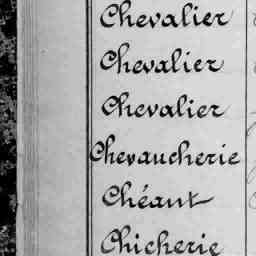 Chevalier
Chevalier
Chevalier
Chevaucherie
Chéant
Chicherie